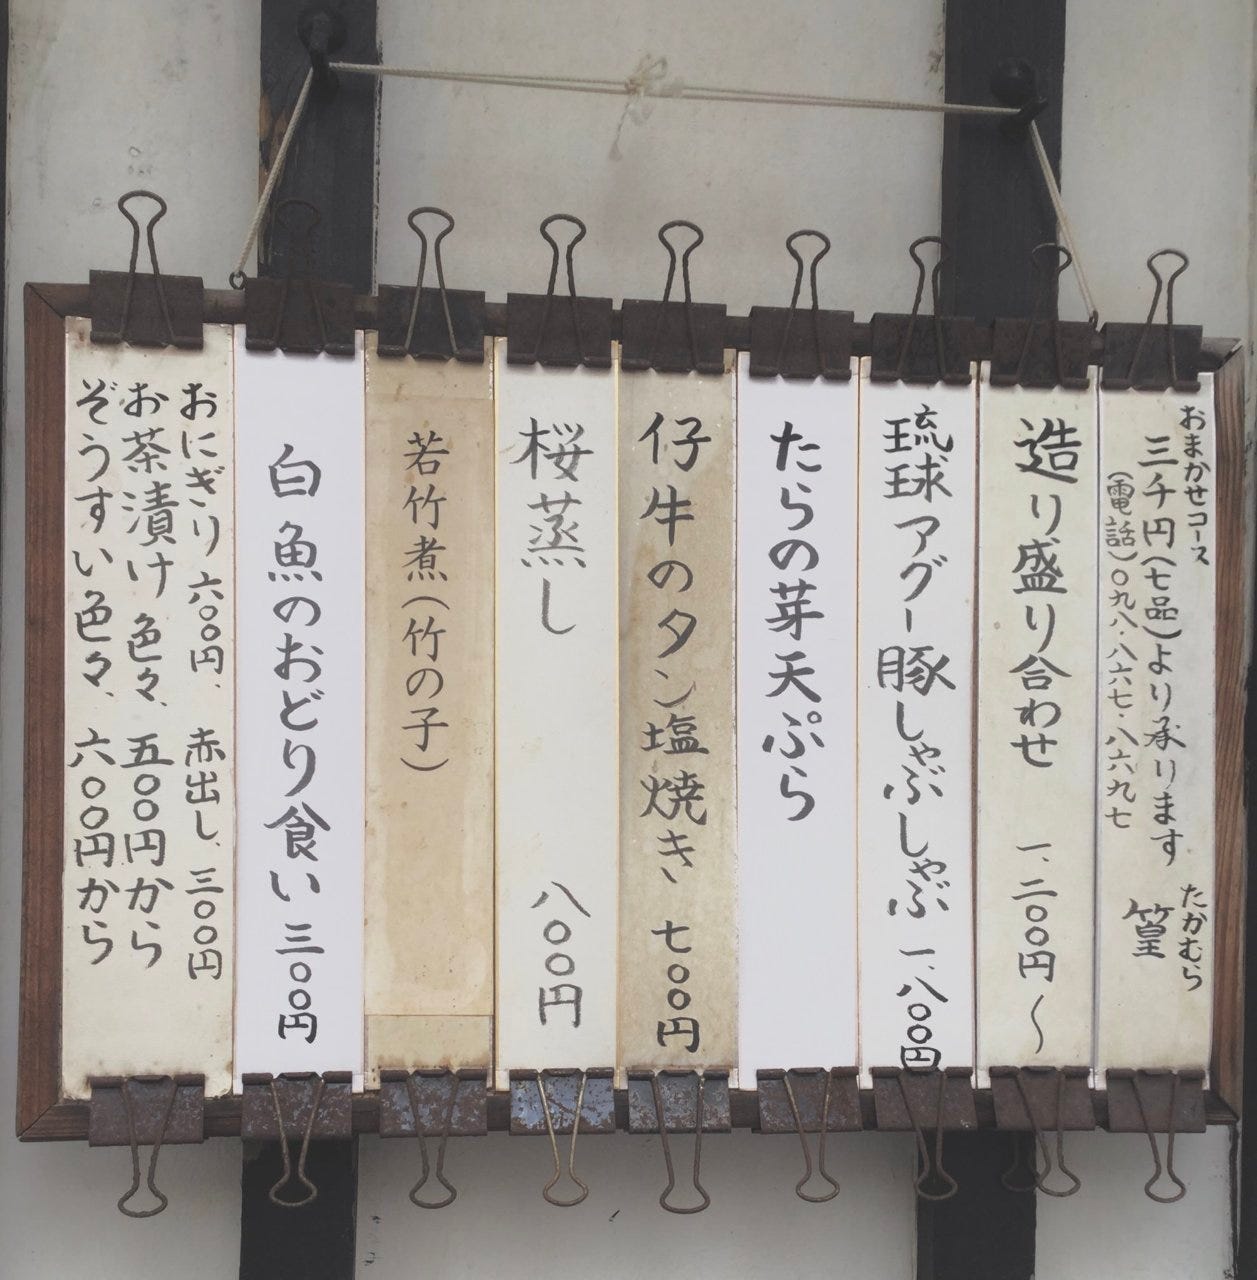 おまかせコース
三千円(七品)より承ります
(電話)〇九八・八六七・八六九七
たかむら
篁
造り盛り合わせ 一、二〇〇円〜
琉球アグー豚しゃぶしゃぶ 一、八〇〇円
たらの芽天ぷら
仔牛のタン塩焼き 七〇〇円
桜蒸し 八〇〇円
若竹煮(竹の子)
白魚のおどり食い 三〇〇円
おにぎり 六〇〇円、 赤出し、三〇〇円
お茶漬け 色々、 五〇〇円から
ぞうすい色々、 六〇〇円から